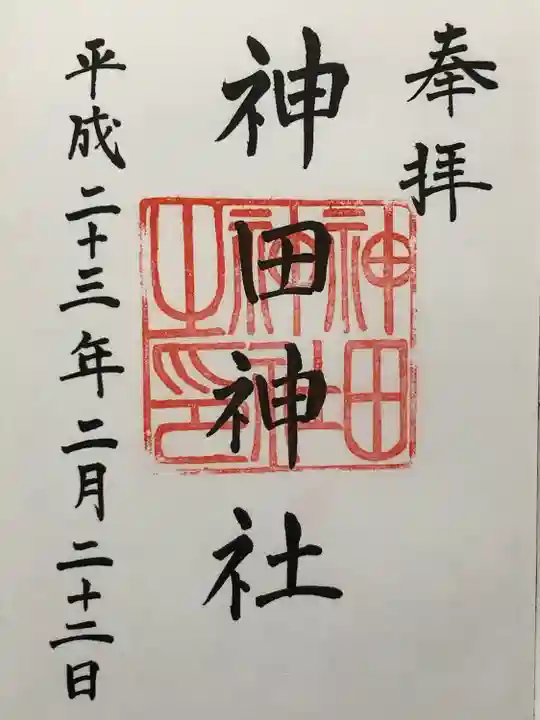 奉拝
神田神社
神田
神社
之印
平成二十三年二月二十二日